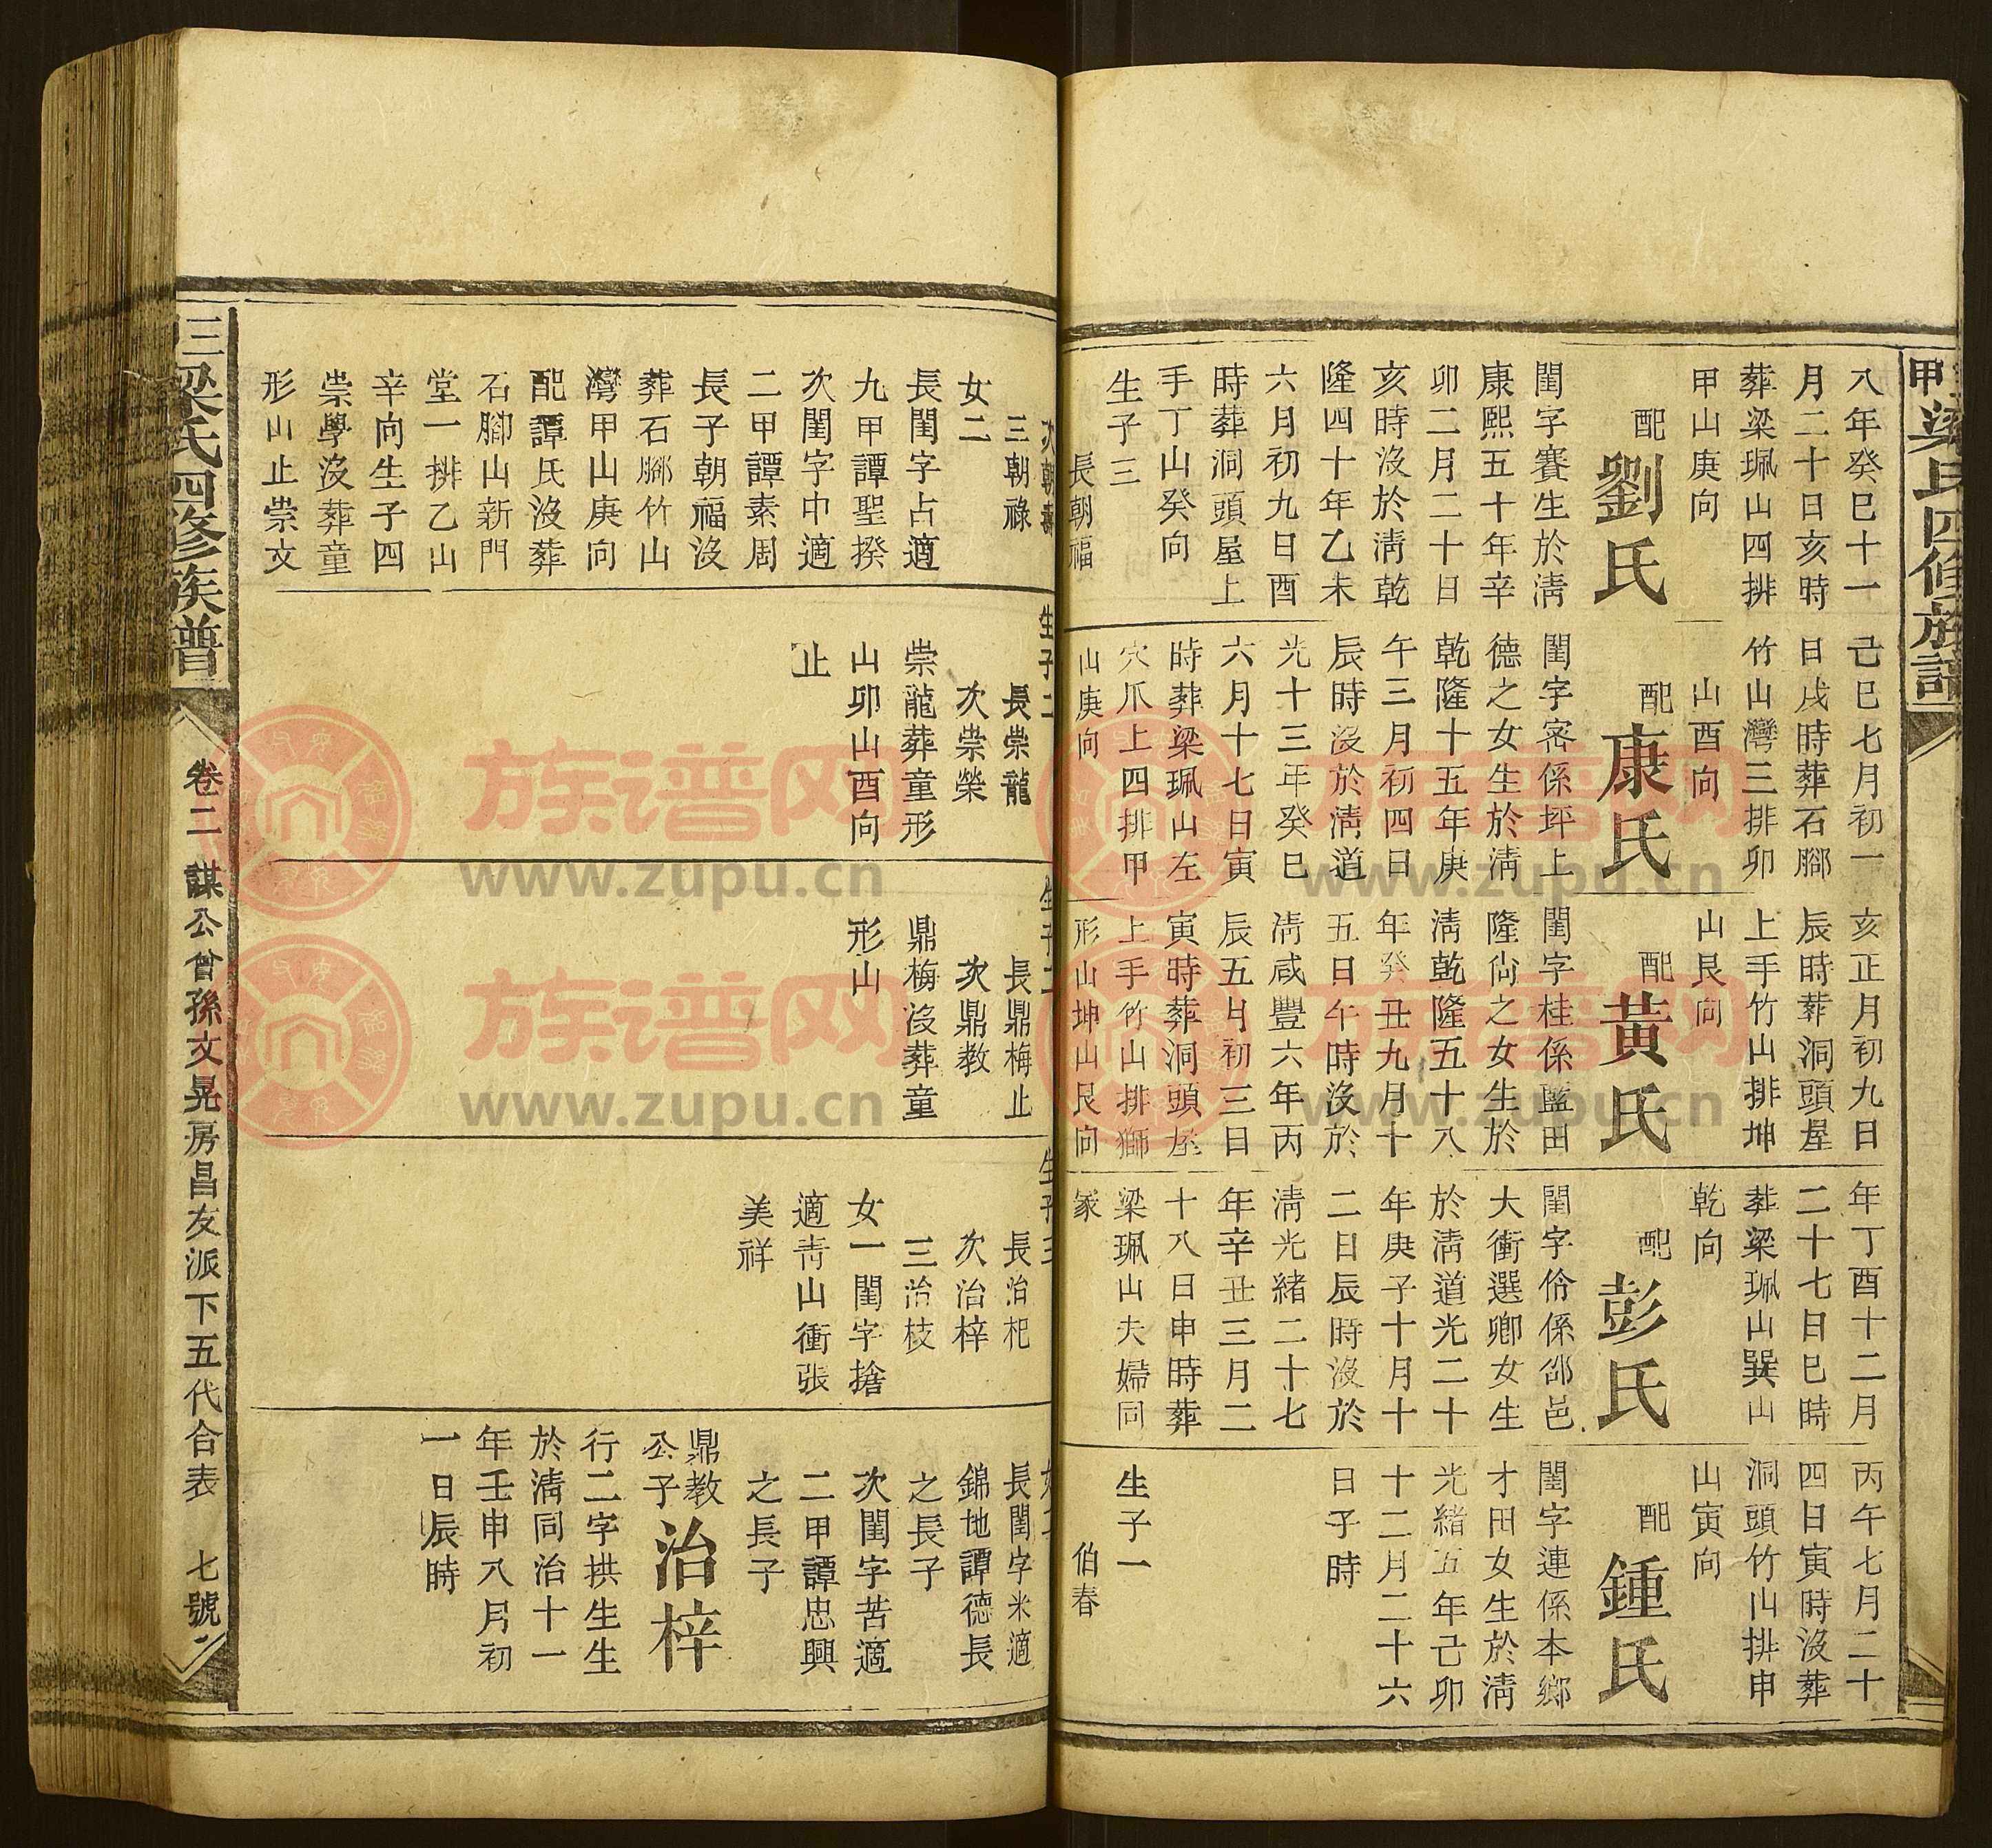 甲梁氏四修族譜
八年癸巳十一
月二十日亥時
葬梁珮山四排
甲山庚向
配劉氏
閨字賽生於清
康熙五十年辛
卯二月二十日
亥時沒於清乾
隆四十年乙未
六月初九日酉
時葬洞頭屋上
手丁山癸向
生子三
長朝福
己巳七月初一
日戌時葬石腳
竹山灣三排卯
山酉向
配康氏
閨字密係坪上
德之女生於清
乾隆十五年庚
午三月初四日
辰時沒於清道
光十三年癸巳
六月十七日寅
時葬梁珮山左
穴爪上四排甲
山庚向
亥正月初九日
辰時葬洞頭屋
上手竹山排坤
山艮向
配黃氏
閨字桂係藍田
隆尚之女生於
清乾隆五十八
年癸丑九月十
五日午時沒於
清咸豐六年丙
辰五月初三日
寅時葬洞頭屋
上手竹山排獅
形山坤山艮向
年丁酉十二月
二十七日巳時
葬梁珮山巽山
乾向
配彭氏
閨字伶係邵邑
大衝選卿女生
於清道光二十
年庚子十月十
二日辰時沒於
清光緒二十七
年辛丑三月二
十八日申時葬
梁珮山夫婦同
冢
丙午七月二十
四日寅時沒葬
洞頭竹山排申
山寅向
配鍾氏
閨字連係本鄉
才田女生於清
光緒五年己卯
十二月二十六
日子時
生子一
伯春
次朝壽
三朝祿
女二
長閨字占適
九甲譚聖揆
次閨字中適
二甲譚素周
長子朝福沒
葬石腳竹山
灣甲山庚向
配譚氏沒葬
石腳山新門
堂一排乙山
辛向生子四
崇學沒葬童
形山止崇文
生子二
長崇龍
次崇榮
崇龍葬童形
山卯山酉向
止
生子二
長鼎梅止
次鼎教
鼎梅沒葬童
形山
生子三
長治杞
次治梓
三治枝
女一閨字搶
適青山衝張
美祥
女二
長閨字米適
錦地譚德長
之長子
次閨字苦適
二甲譚忠興
之長子
鼎教公子治梓
行二字拱生生
於清同治十一
年壬申八月初
一日辰時
三梁氏四修族譜
卷二 謀公曾孫文晃房昌友派下五代合表 七號
族谱网
www.zupu.cn
族谱网
www.zupu.cn
族谱网
www.zupu.cn
族谱网
www.zupu.cn